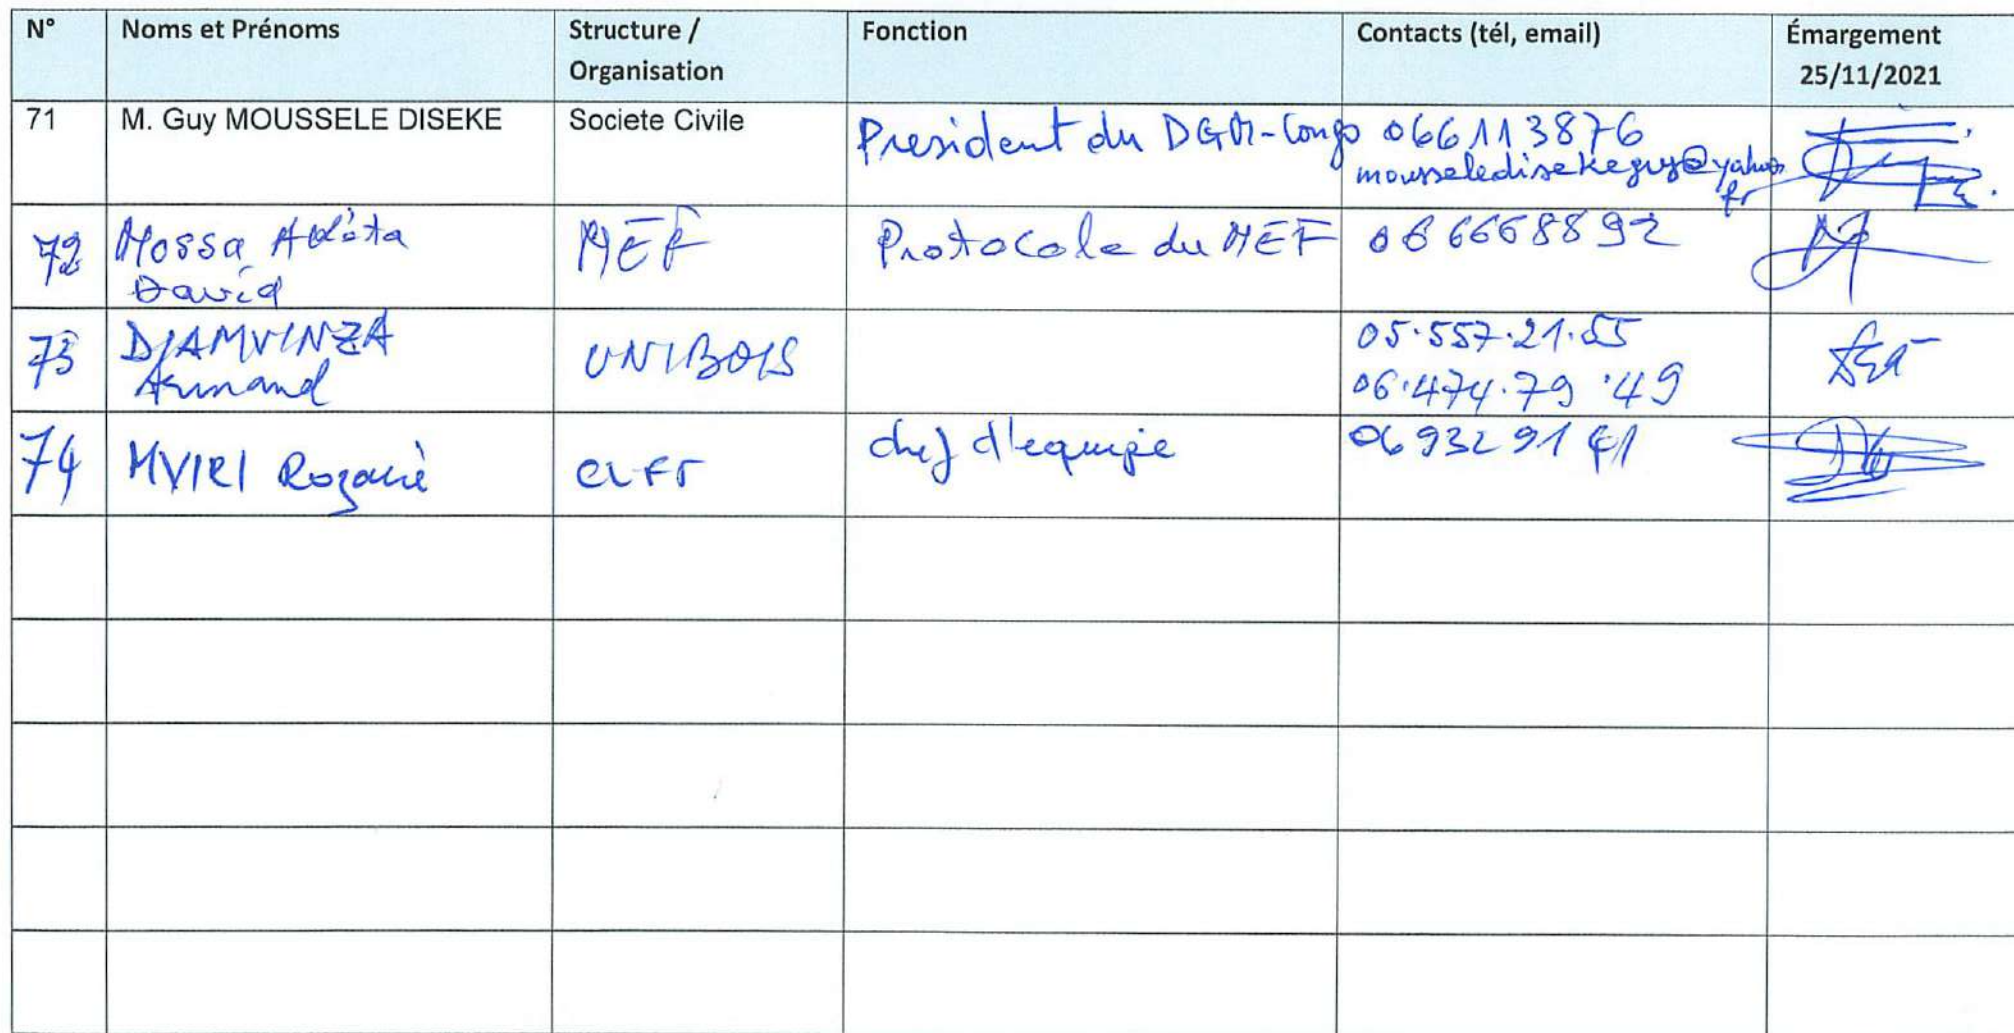 N° Noms et Prénoms Structure / Organisation Fonction Contacts (tél, email) Émargement 25/11/2021
71 M. Guy MOUSSELE DISEKE Societe Civile President du DGM-Congo 066113876
mousseledisekeguy@yahoo
fr
72 Mossa David MEF Protocole du MEF 066668892
73 DJAMVINZA Armand UNIBOIS 05.557.21.55
06.474.79.49
74 MVIRI chef d'equipe 06 932 91